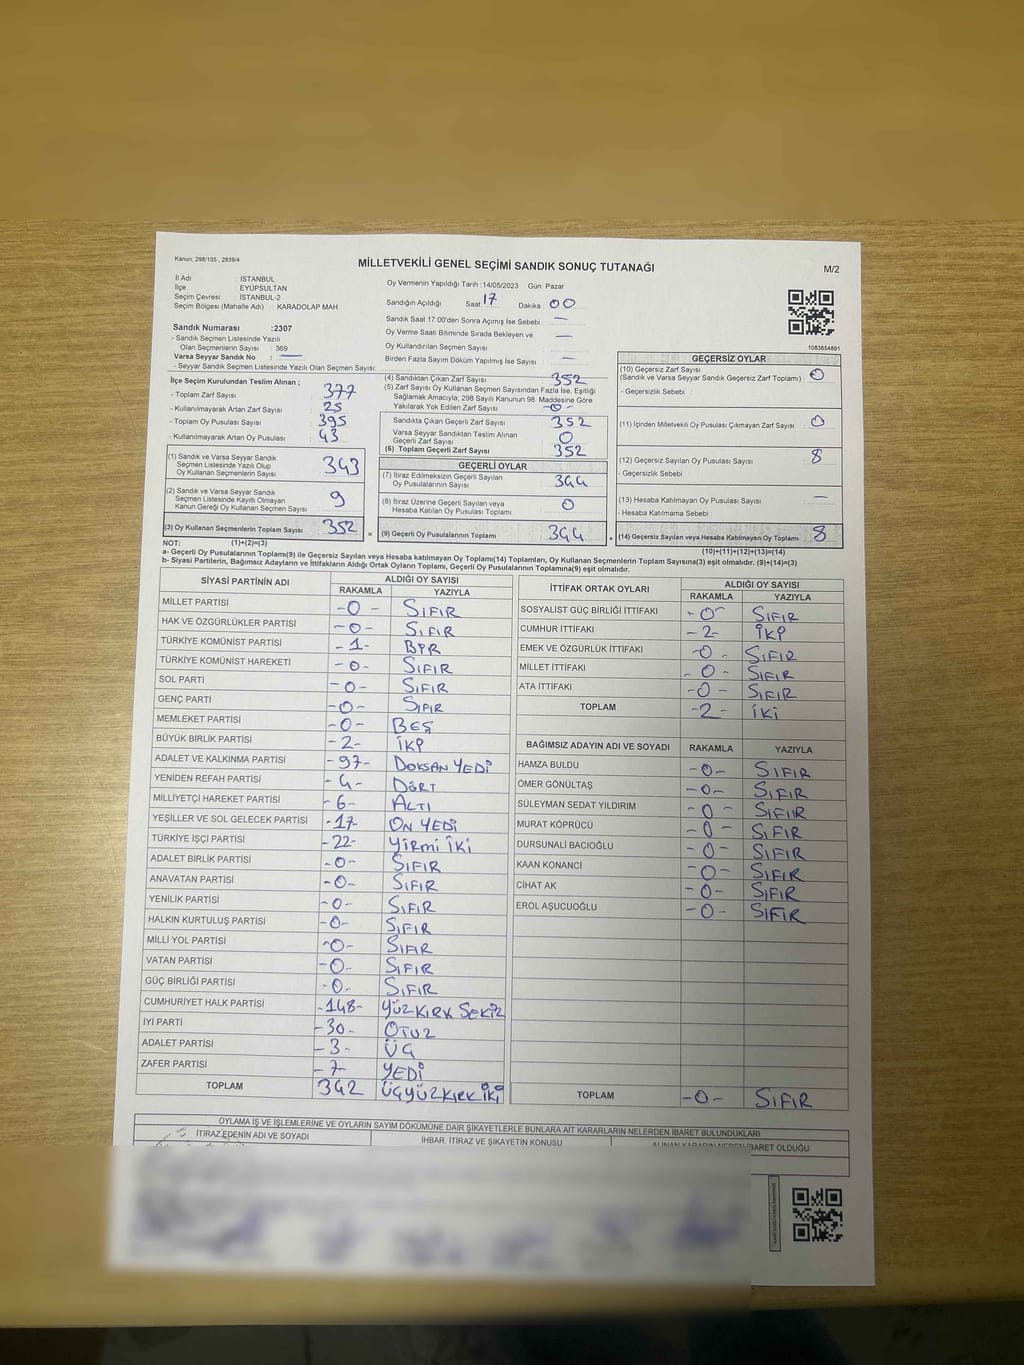 Kanun; 298/105 , 2839/4
MİLLETVEKİLİ GENEL SEÇİMİ SANDIK SONUÇ TUTANAĞI
M/2
İl Adı : İSTANBUL
İlçe : EYÜPSULTAN
Seçim Çevresi : İSTANBUL-2
Seçim Bölgesi (Mahalle Adı) : KARADOLAP MAH
Sandık Numarası :2307
- Sandık Seçmen Listesinde Yazılı
Olan Seçmenlerin Sayısı : 369
Varsa Seyyar Sandık No : —
- Seyyar Sandık Seçmen Listesinde Yazılı Olan Seçmen Sayısı:
Oy Vermenin Yapıldığı Tarih :14/05/2023 Gün: Pazar
Sandığın Açıldığı Saat 17 Dakika : 00
Sandık Saat 17.00'den Sonra Açımış İse Sebebi : —
Oy Verme Saati Bitiminde Sırada Bekleyen ve
Oy Kullandırılan Seçmen Sayısı : —
Birden Fazla Sayım Döküm Yapılmış İse Sayısı : —
1083654891
İlçe Seçim Kurulundan Teslim Alınan ;
- Toplam Zarf Sayısı : 377
- Kullanılmayarak Artan Zarf Sayısı : 25
- Toplam Oy Pusulası Sayısı : 395
- Kullanılmayarak Artan Oy Pusulası : 43
(1) Sandık ve Varsa Seyyar Sandık
Seçmen Listesinde Yazılı Olup
Oy Kullanan Seçmenlerin Sayısı 343
(2) Sandık ve Varsa Seyyar Sandık
Seçmen Listesinde Kayıtlı Olmayan
Kanun Gereği Oy Kullanan Seçmen Sayısı 9
(3) Oy Kullanan Seçmenlerin Toplam Sayısı 352
(4) Sandıktan Çıkan Zarf Sayısı 352
(5) Zarf Sayısı Oy Kullanan Seçmen Sayısından Fazla İse, Eşitliği
Sağlamak Amacıyla, 298 Sayılı Kanunun 98. Maddesine Göre
Yakılarak Yok Edilen Zarf Sayısı -0-
Sandıkta Çıkan Geçerli Zarf Sayısı 352
Varsa Seyyar Sandıktan Teslim Alınan
Geçerli Zarf Sayısı 0
(6) Toplam Geçerli Zarf Sayısı 352
GEÇERLİ OYLAR
(7) İtiraz Edilmeksizin Geçerli Sayılan
Oy Pusulalarının Sayısı 344
(8) İtiraz Üzerine Geçerli Sayılan veya
Hesaba Katılan Oy Pusulası Toplamı 0
= (9) Geçerli Oy Pusulalarının Toplamı 344
GEÇERSİZ OYLAR
(10) Geçersiz Zarf Sayısı
(Sandık ve Varsa Seyyar Sandık Geçersiz Zarf Toplamı) : 0
- Geçersizlik Sebebi :
(11) İçinden Milletvekili Oy Pusulası Çıkmayan Zarf Sayısı : 0
(12) Geçersiz Sayılan Oy Pusulası Sayısı : 8
- Geçersizlik Sebebi :
(13) Hesaba Katılmayan Oy Pusulası Sayısı : —
- Hesaba Katılmama Sebebi :
+ (14) Geçersiz Sayılan veya Hesaba Katılmayan Oy Toplamı 8
NOT: (1)+(2)=(3) (10)+(11)+(12)+(13)=(14)
a- Geçerli Oy Pusulalarının Toplamı(9) ile Geçersiz Sayılan veya Hesaba katılmayan Oy Toplamı(14) Toplamları, Oy Kullanan Seçmenlerin Toplam Sayısına(3) eşit olmalıdır. (9)+(14)=(3)
b- Siyasi Partilerin, Bağımsız Adayların ve İttifakların Aldığı Ortak Oyların Toplamı, Geçerli Oy Pusulalarının Toplamına(9) eşit olmalıdır.
SİYASİ PARTİNİN ADI ALDIĞI OY SAYISI
RAKAMLA YAZIYLA
MİLLET PARTİSİ -0- SIFIR
HAK VE ÖZGÜRLÜKLER PARTİSİ -0- SIFIR
TÜRKİYE KOMÜNİST PARTİSİ -1- BİR
TÜRKİYE KOMÜNİST HAREKETİ -0- SIFIR
SOL PARTİ -0- SIFIR
GENÇ PARTİ -0- SIFIR
MEMLEKET PARTİSİ -0- BEŞ
BÜYÜK BİRLİK PARTİSİ -2- İKİ
ADALET VE KALKINMA PARTİSİ -97- DOKSAN YEDİ
YENİDEN REFAH PARTİSİ -4- DÖRT
MİLLİYETÇİ HAREKET PARTİSİ -6- ALTI
YEŞİLLER VE SOL GELECEK PARTİSİ -17- ON YEDİ
TÜRKİYE İŞÇİ PARTİSİ -22- YİRMİ İKİ
ADALET BİRLİK PARTİSİ -0- SIFIR
ANAVATAN PARTİSİ -0- SIFIR
YENİLİK PARTİSİ -0- SIFIR
HALKIN KURTULUŞ PARTİSİ -0- SIFIR
MİLLİ YOL PARTİSİ -0- SIFIR
VATAN PARTİSİ -0- SIFIR
GÜÇ BİRLİĞİ PARTİSİ -0- SIFIR
CUMHURİYET HALK PARTİSİ -148- YÜZ KIRK SEKİZ
İYİ PARTİ -30- OTUZ
ADALET PARTİSİ -3- ÜÇ
ZAFER PARTİSİ -7- YEDİ
TOPLAM 342 ÜÇYÜZ KIRK İKİ
İTTİFAK ORTAK OYLARI ALDIĞI OY SAYISI
RAKAMLA YAZIYLA
SOSYALİST GÜÇ BİRLİĞİ İTTİFAKI -0- SIFIR
CUMHUR İTTİFAKI -2- İKİ
EMEK VE ÖZGÜRLÜK İTTİFAKI -0- SIFIR
MİLLET İTTİFAKI -0- SIFIR
ATA İTTİFAKI -0- SIFIR
TOPLAM -2- İKİ
BAĞIMSIZ ADAYIN ADI VE SOYADI RAKAMLA YAZIYLA
HAMZA BULDU -0- SIFIR
ÖMER GÖNÜLTAŞ -0- SIFIR
SÜLEYMAN SEDAT YILDIRIM -0- SIFIR
MURAT KÖPRÜCÜ -0- SIFIR
DURSUNALİ BACIOĞLU -0- SIFIR
KAAN KONANCİ -0- SIFIR
CİHAT AK -0- SIFIR
EROL AŞUCUOĞLU -0- SIFIR
TOPLAM -0- SIFIR
OYLAMA İŞ VE İŞLEMLERİNE VE OYLARIN SAYIM DÖKÜMÜNE DAİR ŞİKAYETLERLE BUNLARA AİT KARARLARIN NELERDEN İBARET BULUNDUKLARI
İTİRAZ EDENİN ADI VE SOYADI İHBAR, İTİRAZ VE ŞİKAYETİN KONUSU ALINAN KARARIN NEDEN İBARET OLDUĞU